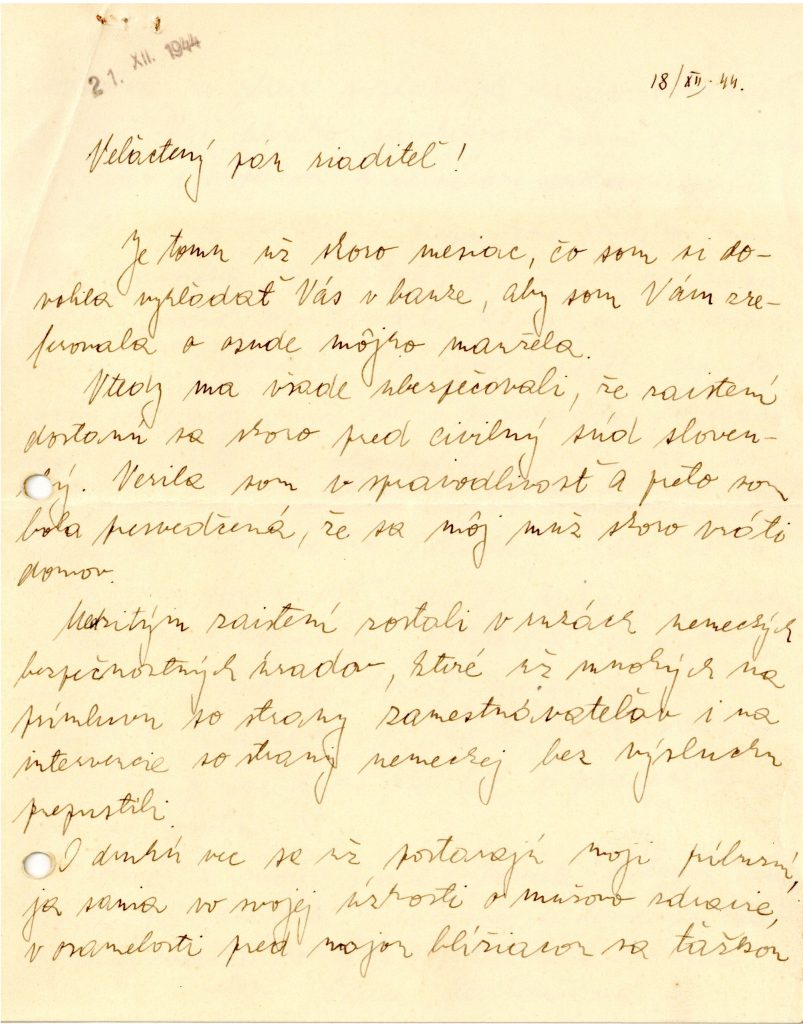 21. XII. 1944
18/XII. 44.
Veľactený pán riaditeľ!
Je tomu už skoro mesiac, čo som si do-
volila vyhľadať Vás v banke, aby som Vám zre-
ferovala o osude môjho manžela.
Vtedy ma všade ubezpečovali, že zaistení
dostanú sa skoro pred civilný súd sloven-
ský. Verila som v spravodlivosť a preto som
bola presvedčená, že sa môj muž skoro vráti
domov.
Medzitým zaistení zostali v rukách nemeckých
bezpečnostných úradov, ktoré už mnohých na
prímluvu so strany zamestnávateľov i na
intervencie so strany nemeckej bez výsluchu
prepustili.
O druhú vec sa už postarajú moji príbuzní,
ja sama vo svojej úzkosti o mužovo zdravie,
v osamelosti pred mojou blížiacou sa ťažkou